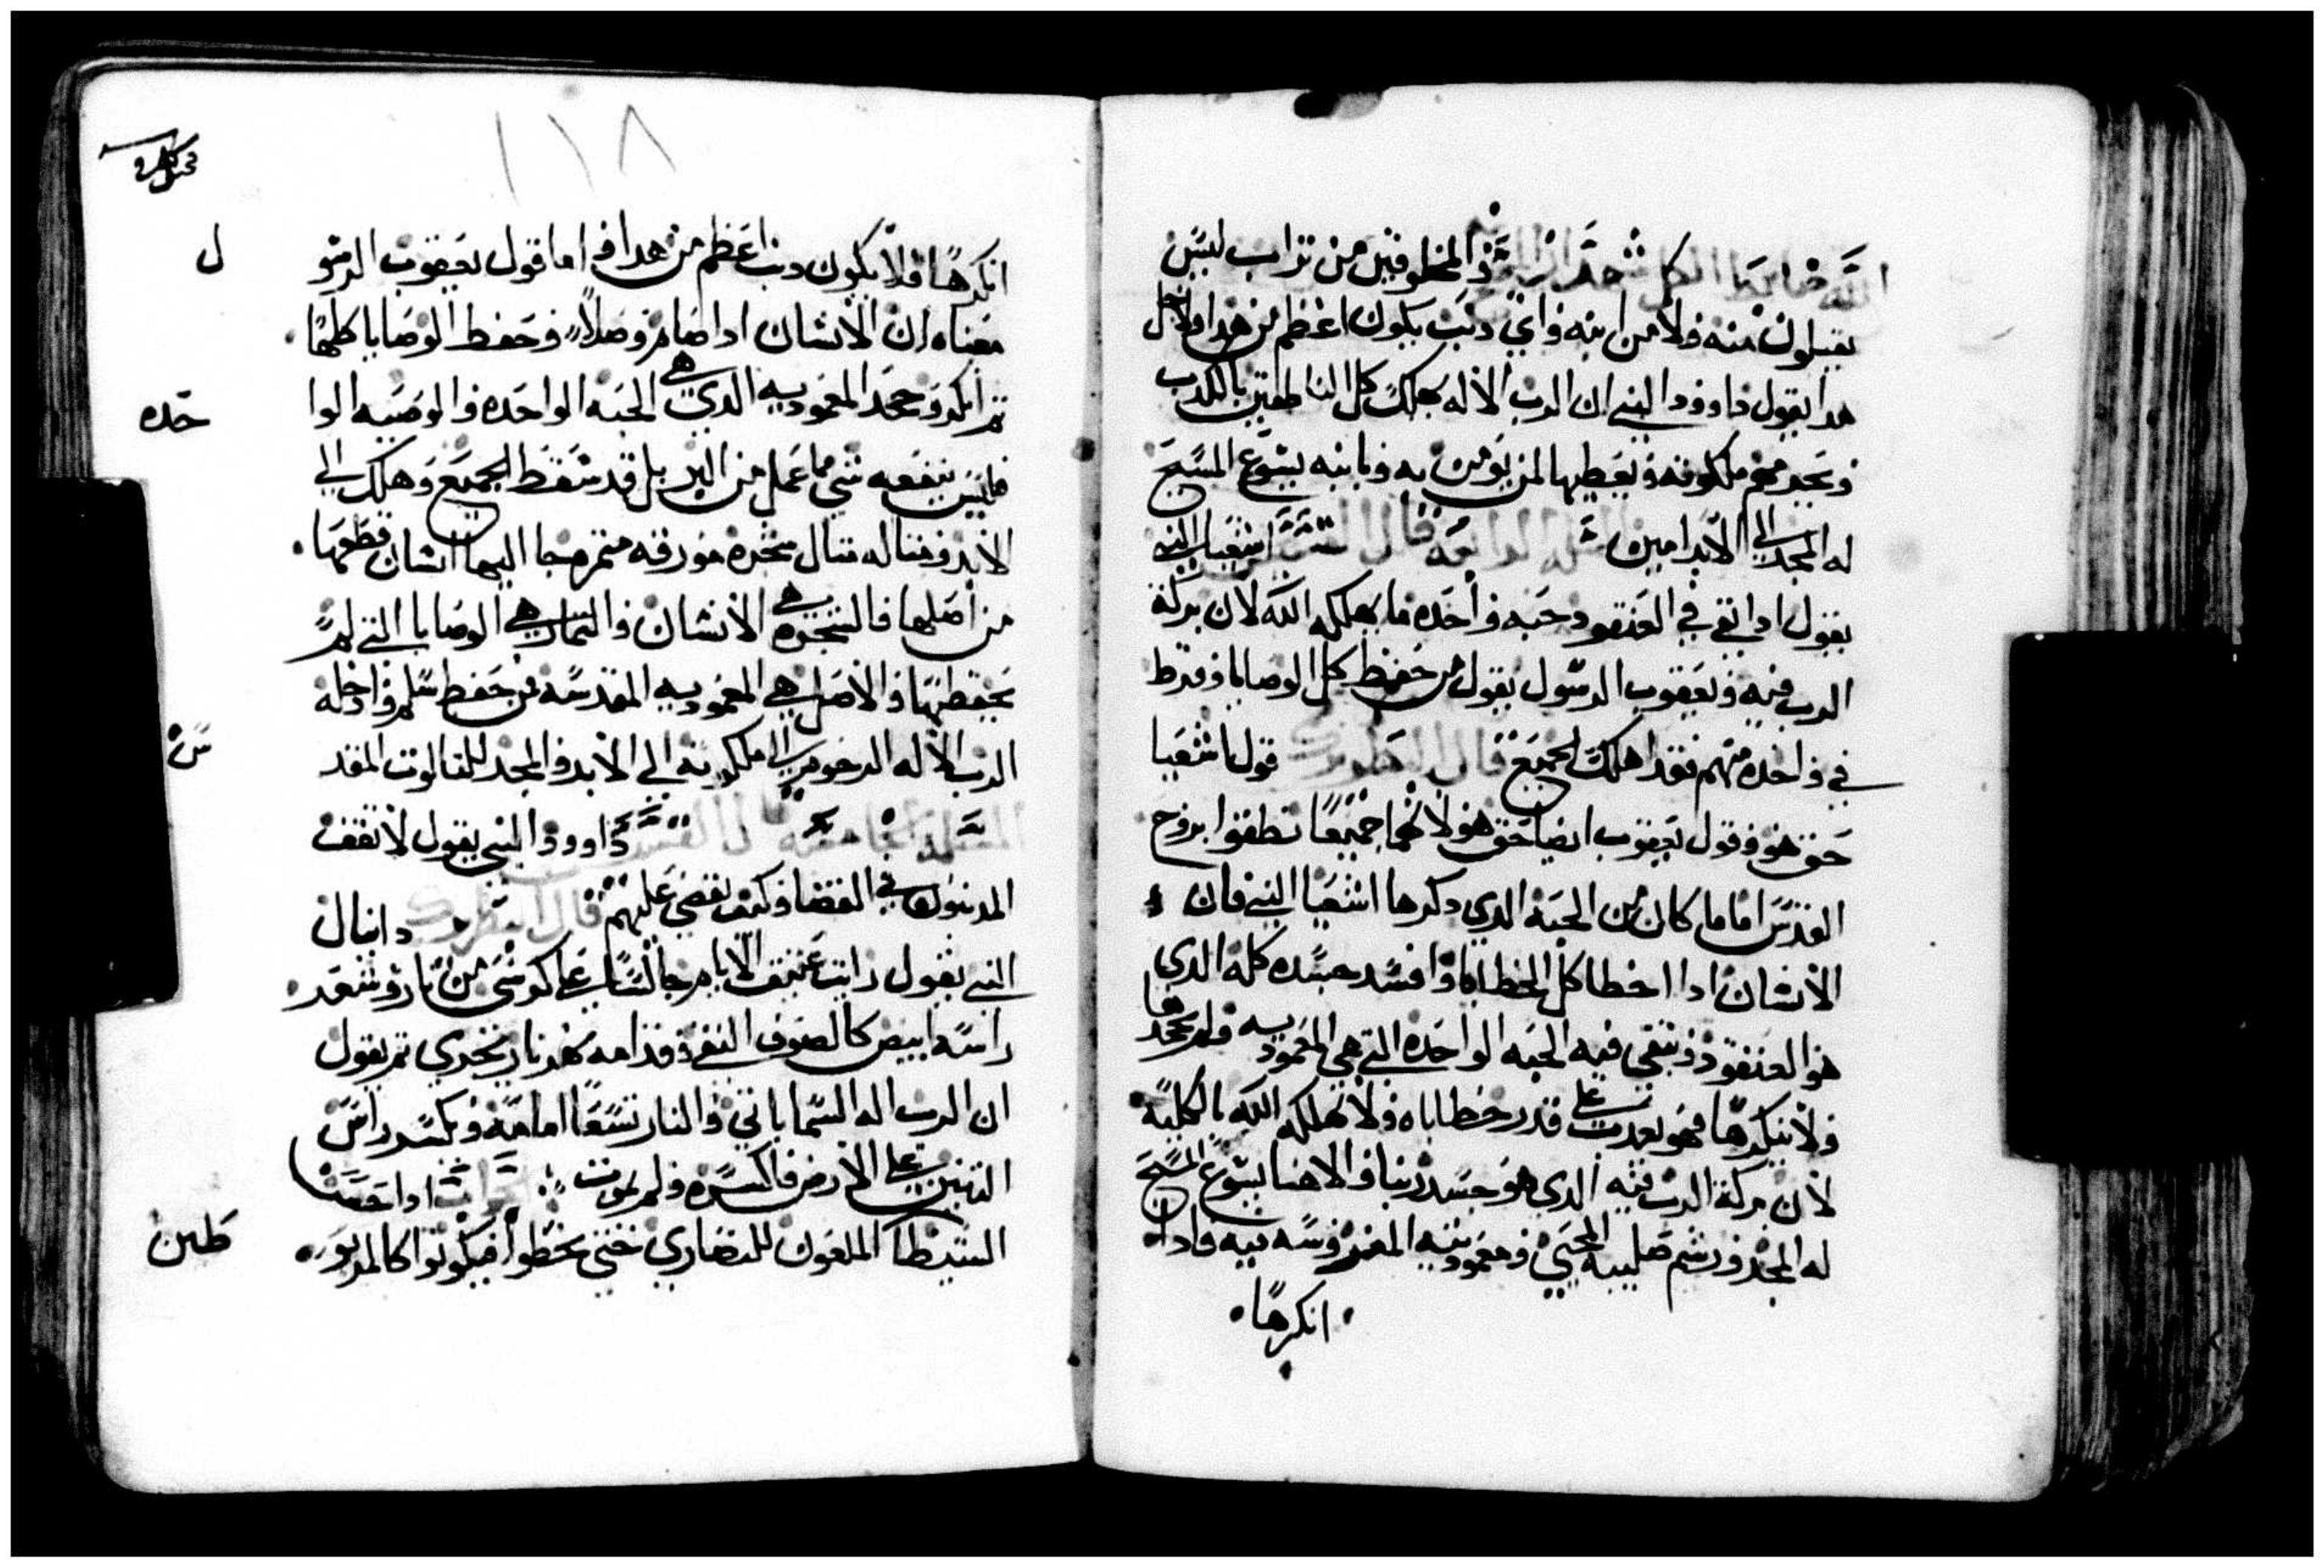 الله ضابط الكل المخلوقين من تراب ليس
يقبلون منه ولا من ابنه واي دنب يكون اعظم من هدا ولاجل
هدا يقول داوود النبي ان الرب الاله يهلك كل الناطقين بالكدب
ويعطيها لمن يومن به وبابنه يسوع المسيح
له المجد الي الابد امين المسله الرابعه قال القس اشعيا النبي
يقول ادا بقي في العنقود حبه واحده ما يهلكه الله لان بركة
الرب فيه ويعقوب الرسول يقول من حفظ كل الوصايا وفرط
في واحده منهم فقد اهلك الجميع قال البطريرك قول اشعيا
حق هو وقول يعقوب ايضا حق هو لانهما جميعا نطقوا بروح
القدس اما ما كان من الحبه الدي دكرها اشعيا النبي فان
الانسان ادا اخطا كل الخطايا وافسد جسده كله الدي
هو العنقود وتبقي فيه الحبه الواحده التي هي المعموديه ولم يجحدها
ولا ينكرها فهو يعدب علي قدر خطاياه ولا يهلكه الله بالكليه
لان بركة الرب فيه الدي هو جسد ربنا والاهنا يسوع المسيح
له المجد ورشم صليبه المحيي ومعموديته المقدوسه فيه فادا
انكرها
١١٨
انكرها فلا يكون دنب اعظم من هدا واما قول يعقوب الرسو
ل
معناه ان الانسان ادا صام وصلا وحفظ الوصايا كلها
تم انكر وجحد المعموديه الدي هي الحبه الواحده والوصيه الوا
حده
فليس ينفعه شي مما عمل من البر بل قد سقط الجميع وهلك الي
الابد ومتاله متال شجره مورقه متمره جا اليها انسان قطعها
من اصلها فالشجره هي الانسان والتمار هي الوصايا التي لم
يحفظها والاصل هي المعموديه المقدسه فمن حفظ سلم وادخله
الرب الاله الرحوم الي ملكوته الي الابد والمجد للتالوت المقد
س
المسله الخامسه قال القس داوود النبي يقول لا تقف
المدنبون في القضا وكيف يقضي عليهم قال البطريرك دانيال
النبي يقول رايت عتيق الايام جالسا علي كرسي من نار وشعر
راسه ابيض كالصوف النقي وقدامه نهر نار تجري تم يقول
ان الرب اله السما ياتي والنار تسعا امامه ويكسر راس
التنين علي الارض فانكسره ولم يموت
الشيطا الملعون للنصاري حتي يخطوا فيكونوا كالمربو
طين